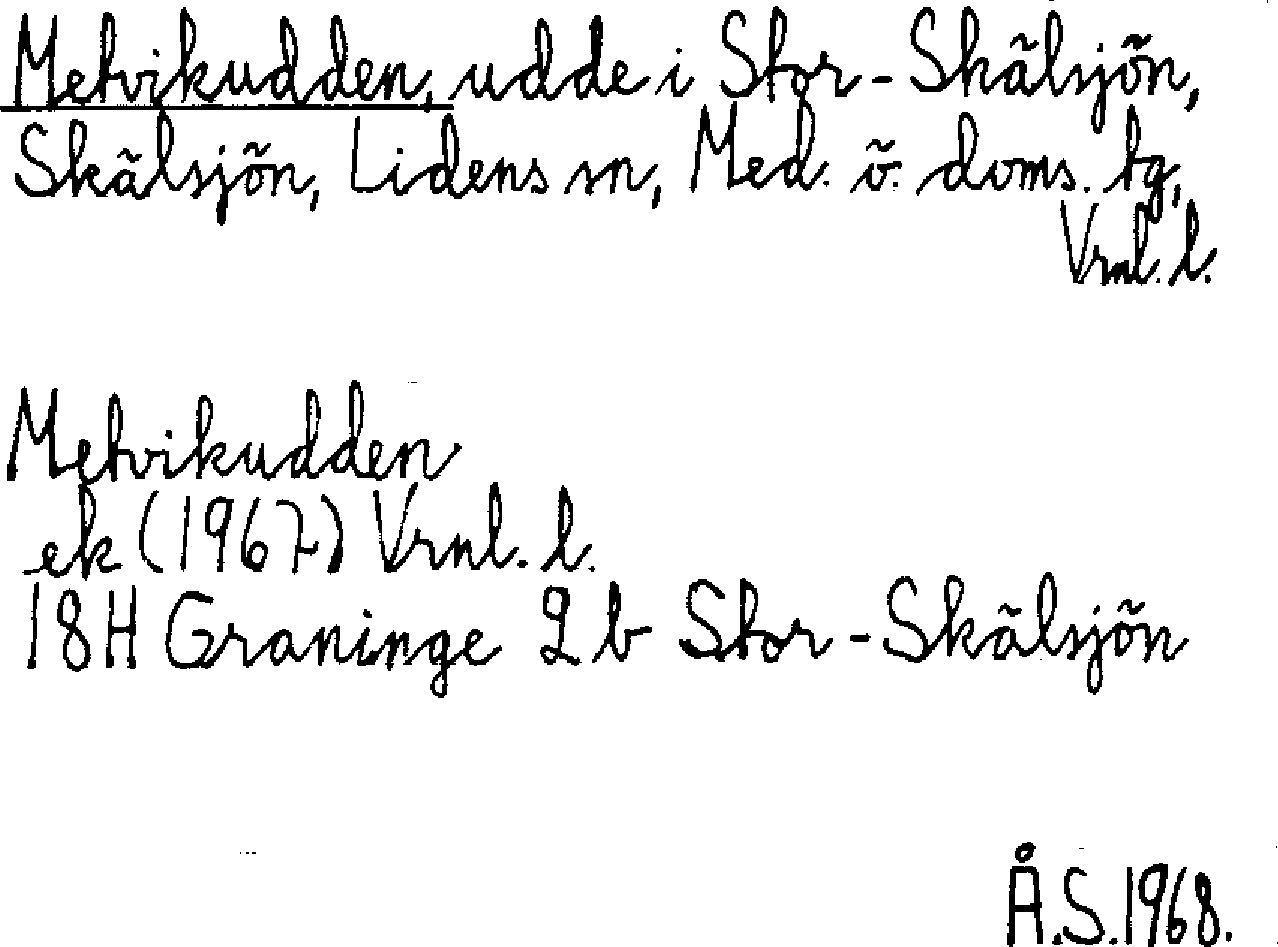 Metvikudden, udde i Stor-Skälsjön,
Skälsjön, Lidens sn, Med. ö. doms. tg,
Vrnl. l.
Metvikudden
ek (1967) Vrnl. l.
18H Graninge 2b Stor-Skälsjön
Å.S. 1968.